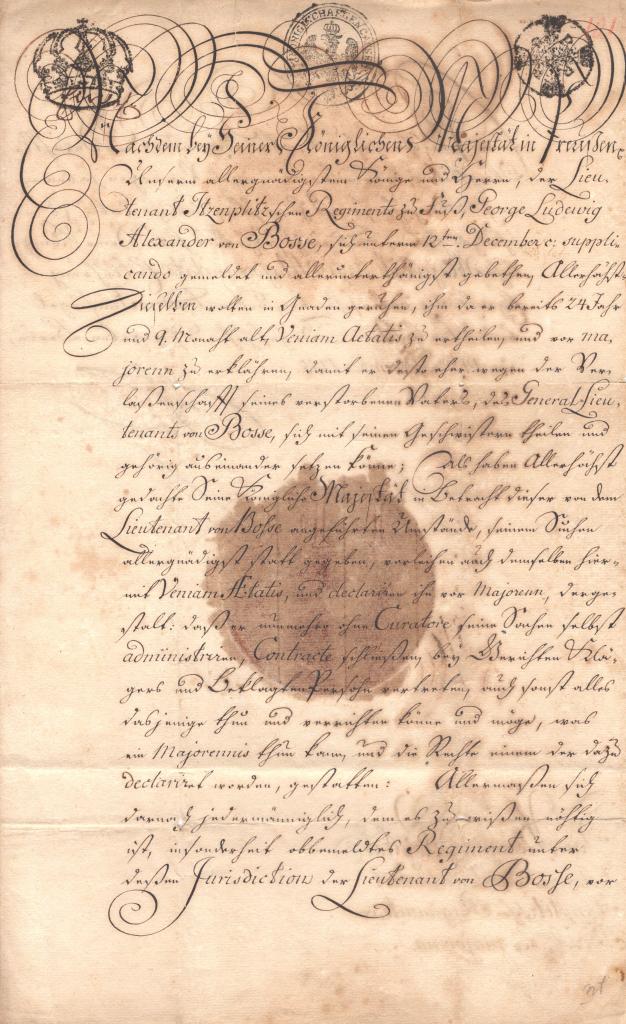 Nachdem bey Seiner Königlichen Majestät in Preußen,
Unserm allergnädigstem Könige und Herrn, der Lieu-
tenant Itzenplitzschen Regiments zu Fuß, George Ludewig
Alexander von Bosse, sich unterm 12ten December c: suppli-
cando gemeldet und allerunterthänigst gebethen, Allerhöchst-
Dieselben wolten in Gnaden geruhen, ihm da er bereits 24 Jahr
und 9. Monath alt, Veniam Aetatis zu ertheilen, und vor ma-
jorenn zu erklähren, damit er desto eher wegen der Ver-
laßenschafft seines verstorbenen Vaters, des General-Lieu-
tenants von Bosse, sich mit seinen Geschwistern theilen und
gehörig auseinander setzen könne; Als haben Allerhöchst
gedachte Seine Königliche Majestät in Betracht dieser von dem
Lieutenant von Bosse angeführten Umstände, seinem Suchen
allergnädigst statt gegeben, verleihen auch demselben hier-
mit Veniam Ætatis, und declariren ihn vor Majorenn, derge-
stalt: daß er nunmehro ohne Curatore seine Sachen selbst
administriren, Contracte schließen, bey Gerichten Klä-
gers und Beklagten Persohn vertreten, auch sonst alles
dasjenige thun und verrichten könne und möge, was
ein Majorennis thun kann, und die Rechte einem der dazu
declariret worden, gestatten: Allermaßen sich
darnach jedermänniglich, dem es zu wißen nöthig
ist, insonderheit obbemeldtes Regiment unter
deßen Jurisdiction der Lieutenant von Bosse, vor